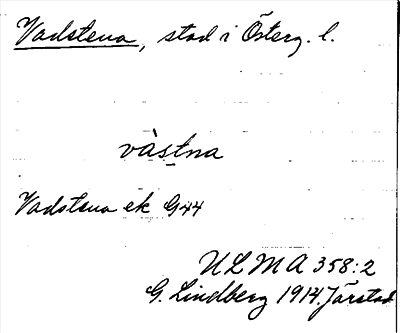 Vadstena, stad i Österg. l.
vàstna
Vadstena ek G44
ULMA 358:2
G. Lindberg 1914. Järstad